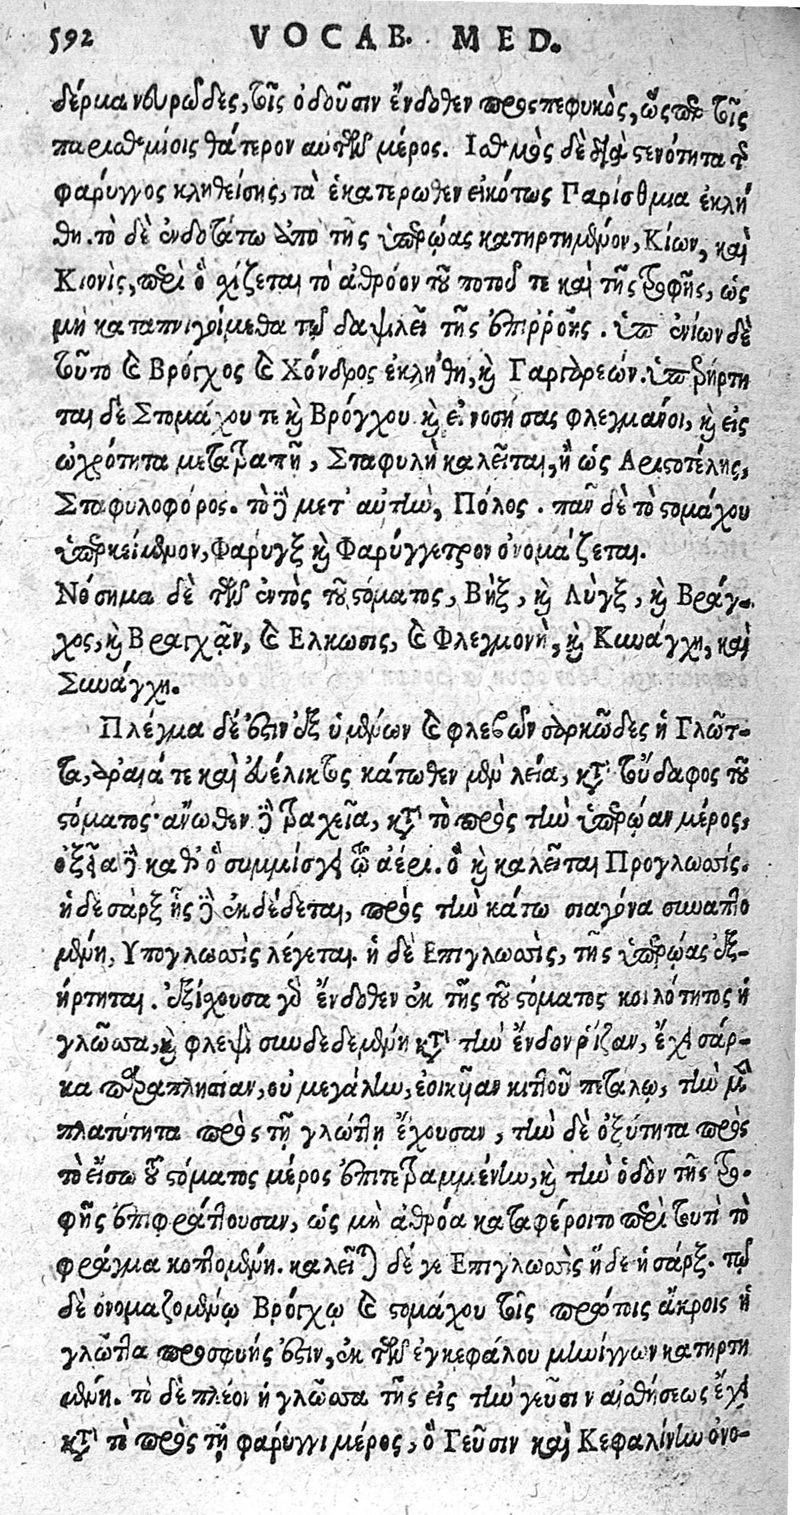 592 VOCAB. MED.
δέρμα νευρῶδες, τοῖς ὀδοῦσιν ἔνδοθεν προςπεφυκὸς, ὥςπερ τοῖς
παρισθμίοις θάτερον αὐτῶν μέρος. Ισθμὸς δὲ διὰ στενότητα τ
φάρυγγος κληθείσης, τὰ ἑκατερωθεν εἰκότως Παρίσθμια ἐκλή
θη. τὸ δὲ ἐνδοτάτω ἀπὸ τῆς ὑπερῴας κατηρτημένον, Κίων, καὶ
Κιονὶς, περὶ ὃ σχίζεται τὸ ἀθρόον τοῦ ποτοῦ τε καὶ τῆς τροφῆς, ὡς
μὴ καταπνιγοίμεθα τῷ δαψιλεῖ τῆς ἐπιῤῥοῆς. ὑπ᾽ ἐνίων δὲ
τοῦτο καὶ Βρόγχος καὶ Χόνδρος ἐκλήθη, καὶ Γαργαρεών. ὑπερήρτη
ται δὲ Στομάχου τε καὶ Βρόγχου καὶ εἰ νοσήσας φλεγμαίνοι, καὶ εἰς
ὠχρότητα μετατραπῇ, Σταφυλὴ καλεῖται, ἢ ὡς Αριστοτέλης,
Σταφυλοφόρος. τὸ δὲ μετ᾽ αὐτὴν, Πόλος. πᾶν δὲ τὸ στομάχου
ὑπερκείμενον, Φάρυγξ καὶ Φαρύγγετρον ὀνομάζεται.
Νόσημα δὲ τῶν ἐντὸς τοῦ στόματος, Βὴξ, καὶ Λὺγξ, καὶ Βράγ-
χος, καὶ Βραγχᾶν, καὶ Ελκωσις, καὶ Φλεγμονὴ, καὶ Κυνάγχη, καὶ
Συνάγχη.
Πλέγμα δέ ἐστιν ἐξ ὑμένων καὶ φλεβῶν σαρκῶδες ἡ Γλῶτ-
τα, ἀραιά τε καὶ ἀνέλικτος κάτωθεν μὲν λεία, κατὰ τοὔδαφος τοῦ
στόματος· ἄνωθεν δὲ τραχεῖα, κατὰ τὸ πρὸς τὴν ὑπερῴαν μέρος,
ὀξεῖα δὲ καθ᾽ ὃ συμμίσγει τῷ ἀέρι. ὃ καὶ καλεῖται Προγλωσσίς.
ἡ δὲ σὰρξ ἧς δὲ ἐκδέδεται, πρὸς τὴν κάτω σιαγόνα συναπτο
μένη, Υπογλωσσὶς λέγεται. ἡ δὲ Επιγλωσσὶς, τῆς ὑπερῴας ἐξ-
ήρτηται. ἐξίχουσα γὰρ ἔνδοθεν ἐκ τῆς τοῦ στόματος κοιλότητος ἡ
γλῶσσα, καὶ φλεψὶ συνδεδεμένη κατὰ τὴν ἔνδον ῥίζαν, ἔχει σάρ-
κα παραπλησίαν, οὐ μεγάλην, ἐοικυῖαν κιττοῦ πετάλῳ, τὴν μὲν
πλατύτητα πρὸς τῇ γλώττῃ ἔχουσαν, τὴν δὲ ὀξύτητα πρὸς
τὸ εἴσω τοῦ στόματος μέρος ἐπιτετραμμένην, καὶ τὴν ὁδὸν τῆς τρο-
φῆς ἐπιφράττουσαν, ὡς μὴ ἀθρόα καταφέροιτο περὶ τουτὶ τὸ
φράγμα κοπτομένη. καλεῖται δέ γε Επιγλωσσὶς ἥδε ἡ σάρξ. τῷ
δὲ ὀνομαζομένῳ Βρόγχῳ καὶ στομάχου τοῖς πρώτοις ἄκροις ἡ
γλῶττα προσφυής ἐστιν, ἐκ τῶν ἐγκεφάλου μηνίγγων κατηρτη
μένη. τὸ δὲ πλέον ἡ γλῶσσα τῆς εἰς τὴν γεῦσιν αἰσθήσεως ἔχει
κατὰ τὸ πρὸς τῇ φάρυγγι μέρος, ὃ Γεῦσιν καὶ Κεφαλίνην ὀνο-